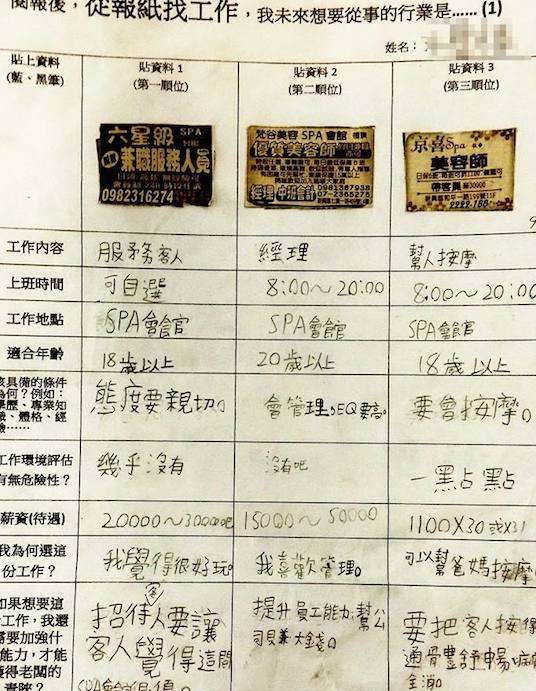 閱報後，從報紙找工作，我未來想要從事的行業是......(1)
姓名：
貼上資料
(藍、黑筆)
貼資料 1
(第一順位)
貼資料 2
(第二順位)
貼資料 3
(第三順位)
六星級 SPA
兼職服務人員
0982316274
梵谷美容 SPA 會館
優質美容師
經理 中班會計
京喜Spa
美容師
工作內容
服務客人
經理
幫人按摩
上班時間
可自選
8:00～20:00
8:00～20:00
工作地點
SPA會館
SPA會館
SPA會館
適合年齡
18歲以上
20歲以上
18歲以上
具備的條件
為何？例如：
學歷、專業知
識、體格、經
驗......
態度要親切。
會管理。EQ要高。
要會按摩。
工作環境評估
有無危險性？
幾乎沒有
沒有吧
一點點
薪資(待遇)
20000～30000吧
15000～50000
1100X30或X31
我為何選這
份工作？
我覺得很好玩。
我喜歡管理。
可以幫爸媽按摩
如果想要這
工作，我還
需要加強什
能力，才能
獲得老闆的
青睞？
招待客人要讓
客人覺得這間
SPA會館很
提升員工能力，幫公
司賺大錢。
要把客人按得
通骨豐舒暢